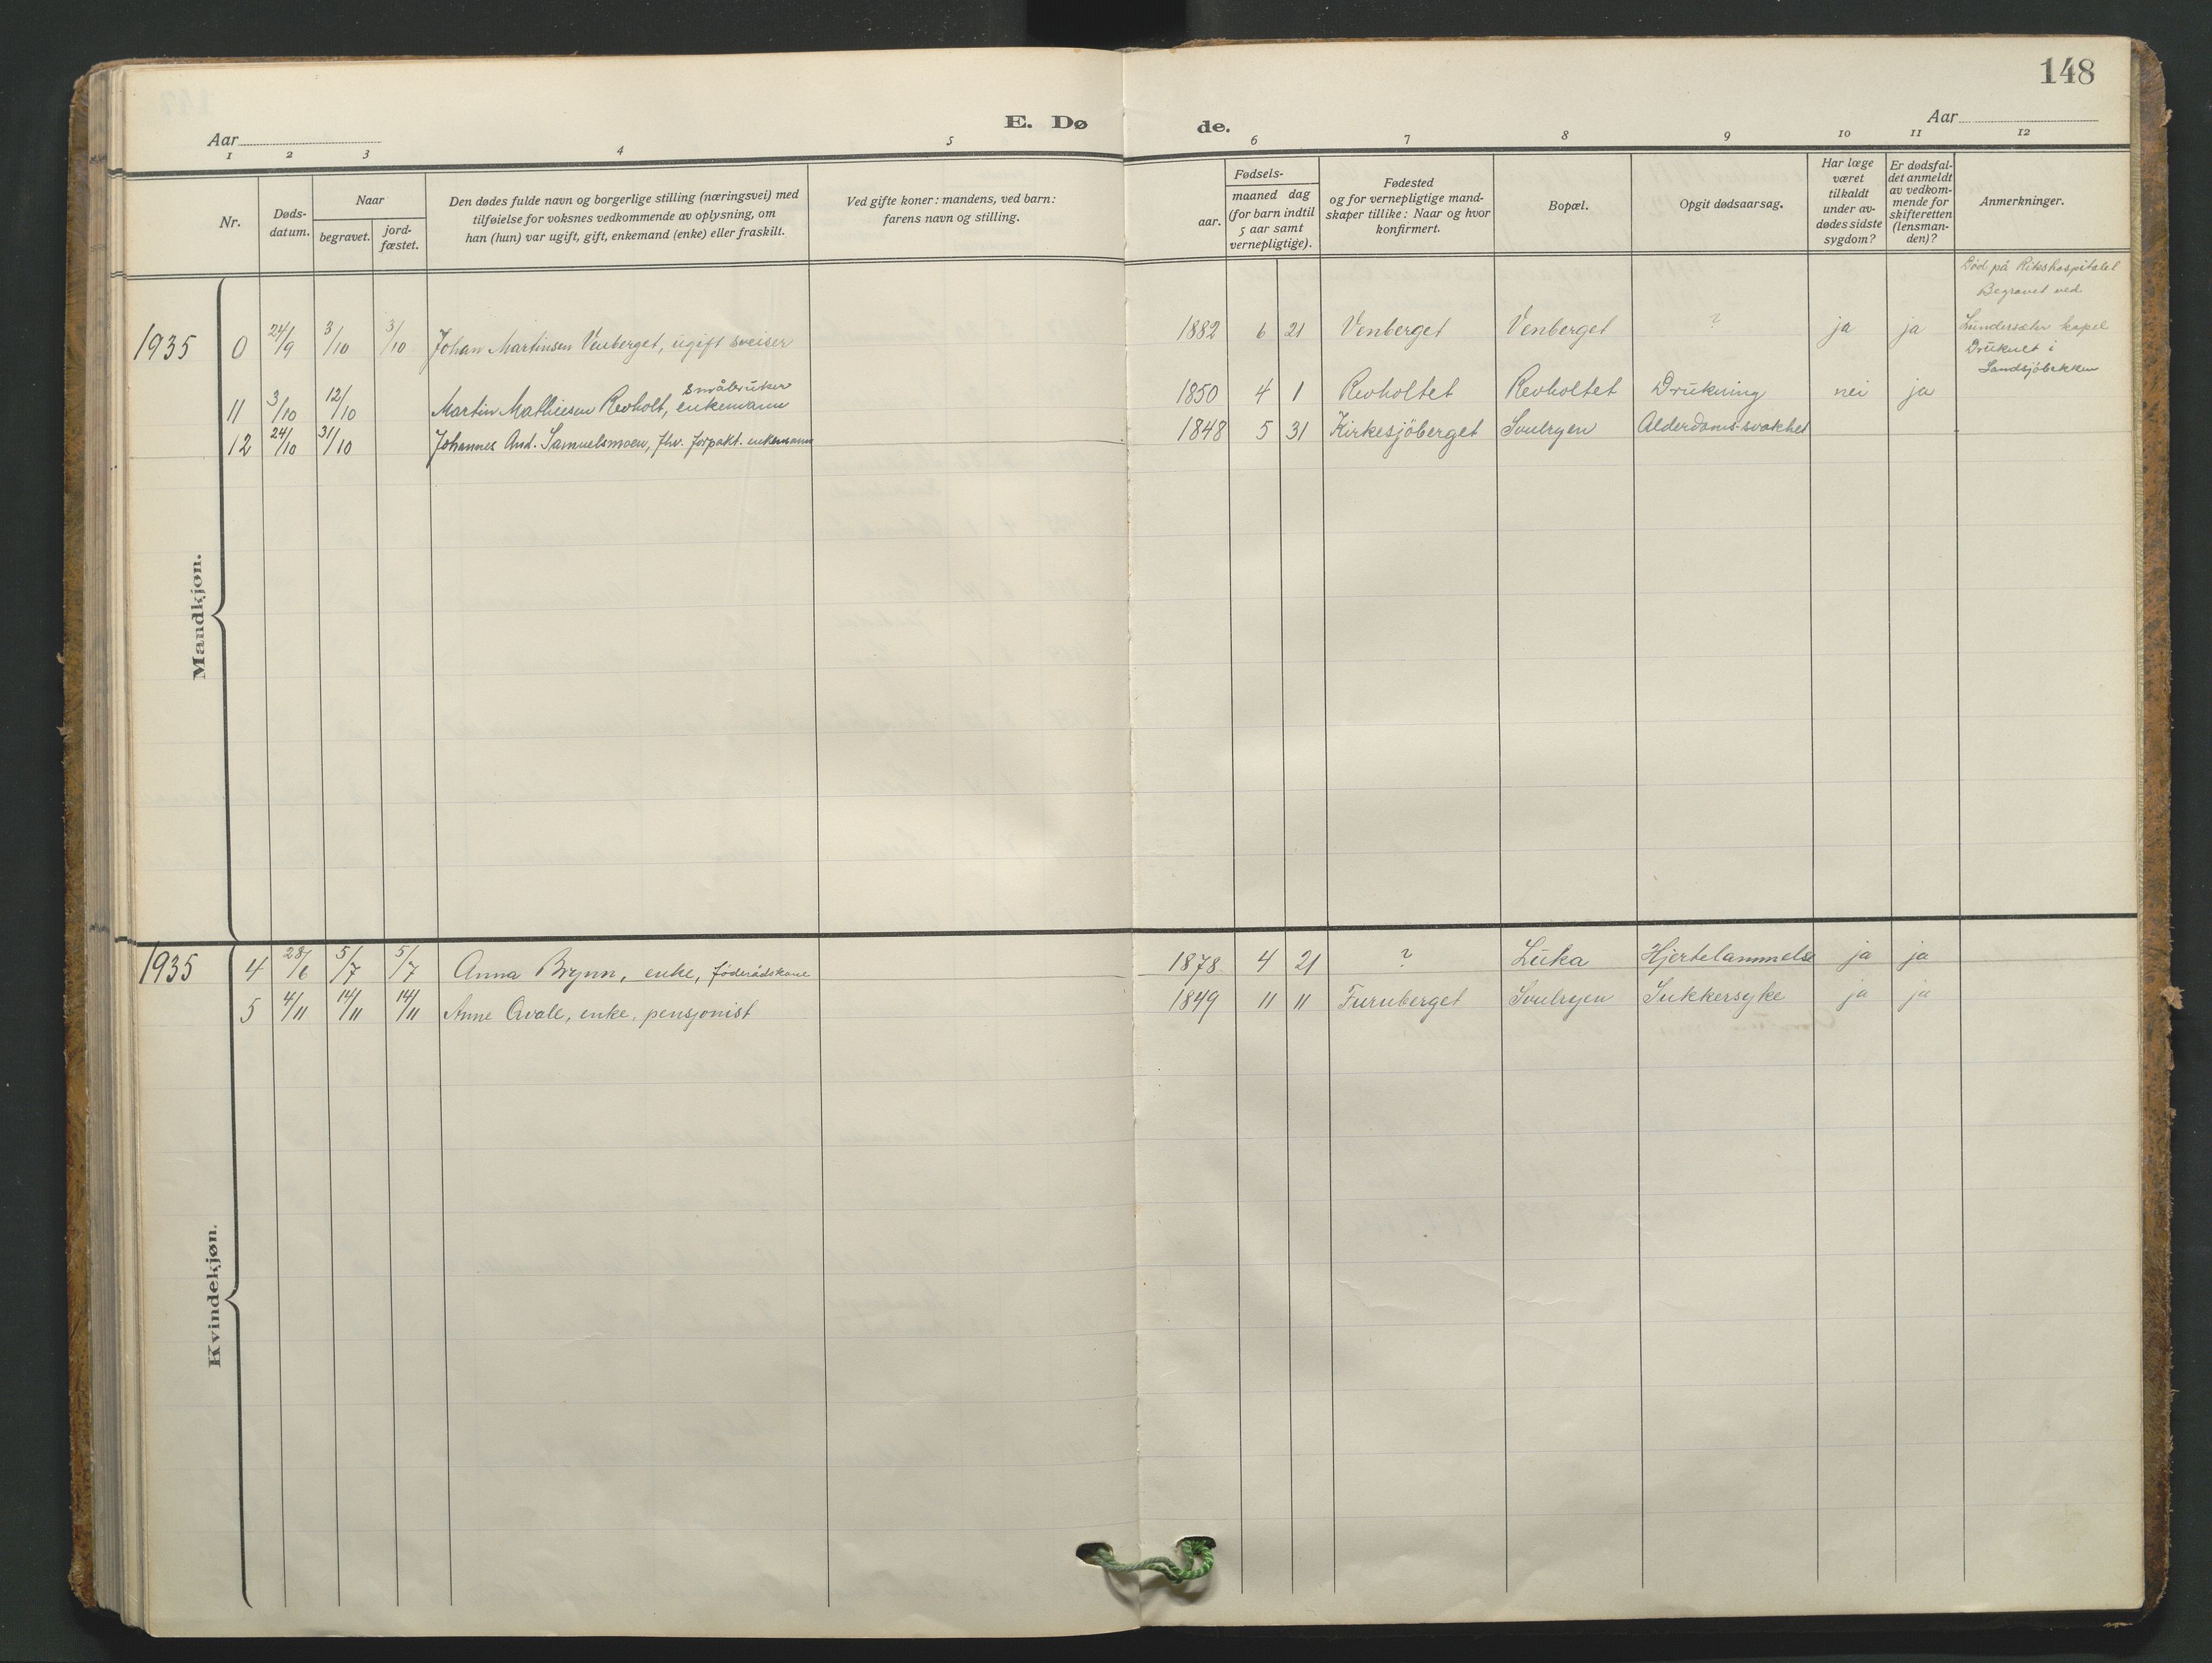 148
E. Dø de.
Aar Aar
1 2 3 4 5 6 7 8 9 10 11 12
Nr.
Døds-
datum.
Naar
begravet.
jord-
fæstet.
Den dødes fulde navn og borgerlige stilling (næringsvei) med
tilføielse for voksnes vedkommende av oplysning, om
han (hun) var ugift, gift, enkemand (enke) eller fraskilt.
Ved gifte koner: mandens, ved barn:
farens navn og stilling.
Fødsels-
aar.
maaned dag
(for barn indtil
5 aar samt
vernepligtige).
Fødested
og for vernepligtige mand-
skaper tillike: Naar og hvor
konfirmert.
Bopæl.
Opgit dødsaarsag.
Har læge
været
tilkaldt
under av-
dødes sidste
sygdom?
Er dødsfal-
det anmeldt
av vedkom-
mende for
skifteretten
(lensman-
den)?
Anmerkninger.
Mandkjøn.
1935 0 24/9 3/10 3/10 Johan Martinsen Venberget, ugift sveiser 1882 6 21 Venberget Venberget ? ja ja
Død på Rikshospitalet
Begravet ved
Lundersæter kapel
småbruker
11 3/10 12/10 Martin Mathiesen Revholt, enkemann 1850 4 1 Revholtet Revholtet Drukning nei ja
Druknet i
Sandsjöbekken
12 24/10 31/10 Johannes And. Samuelsmoen, fhv. forpakt. enkemann 1848 5 31 Kirkesjöberget Svulryen Alderdomssvakhet
Kvindekjøn.
1935 4 28/6 5/7 5/7 Anna Brynn, enke, föderådskone 1878 4 21 ? Luka Hjertelammelse ja ja
5 4/11 14/11 14/11 Anne Qvale, enke, pensjonist 1849 11 11 Furuberget Svulryen Sukkersyke ja ja